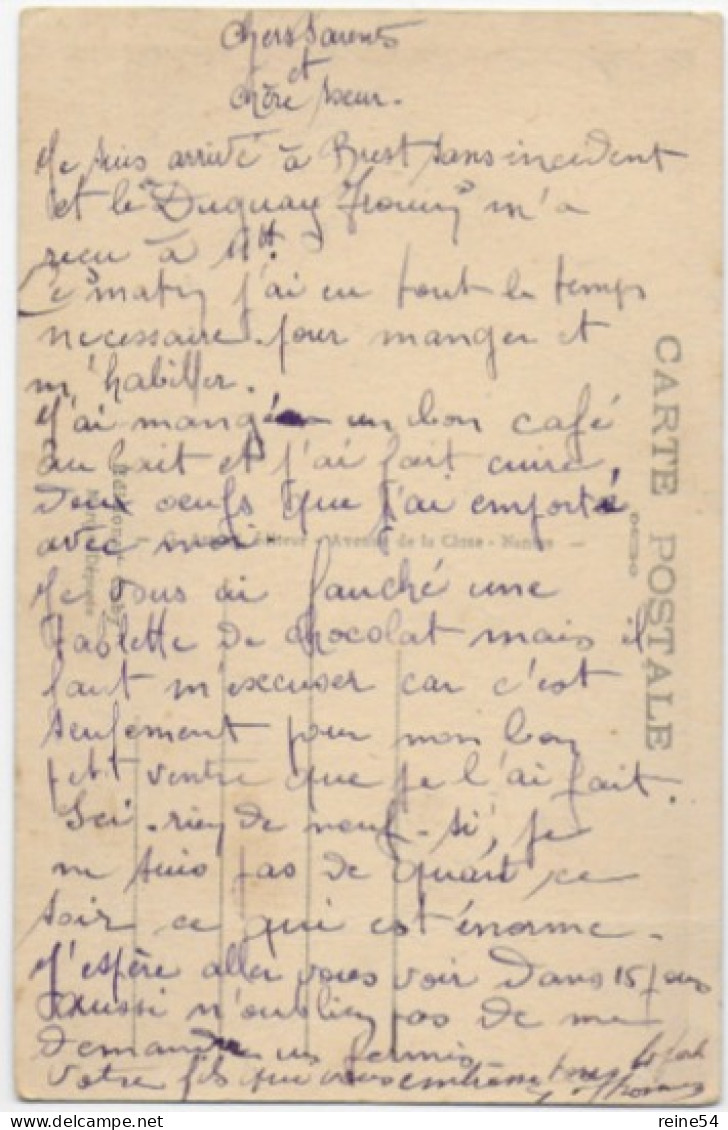 Chers Parents
et
Chère Soeur.
Je suis arrivé à Brest sans incident
et le "Duguay Trouin" m'a
reçu à 11H.
Ce matin j'ai eu tout le temps
necessaire pour manger et
m'habiller.
J'ai mangé un bon café
au lait et j'ai fait cuire
deux oeufs que j'ai emporté
avec moi.
Je vous ai fauché une
tablette de chocolat mais il
faut m'excuser car c'est
seulement pour mon bon
petit ventre que je l'ai fait.
Ici rien de neuf - si, je
ne suis pas de quart ce
soir ce qui est énorme.
J'espère aller vous voir dans 15 jours
aussi n'oubliez pas de me
demander un permis
Votre fils qui vous embrasse tous
CARTE POSTALE
Editeur - Avenue de la Close - Nantes